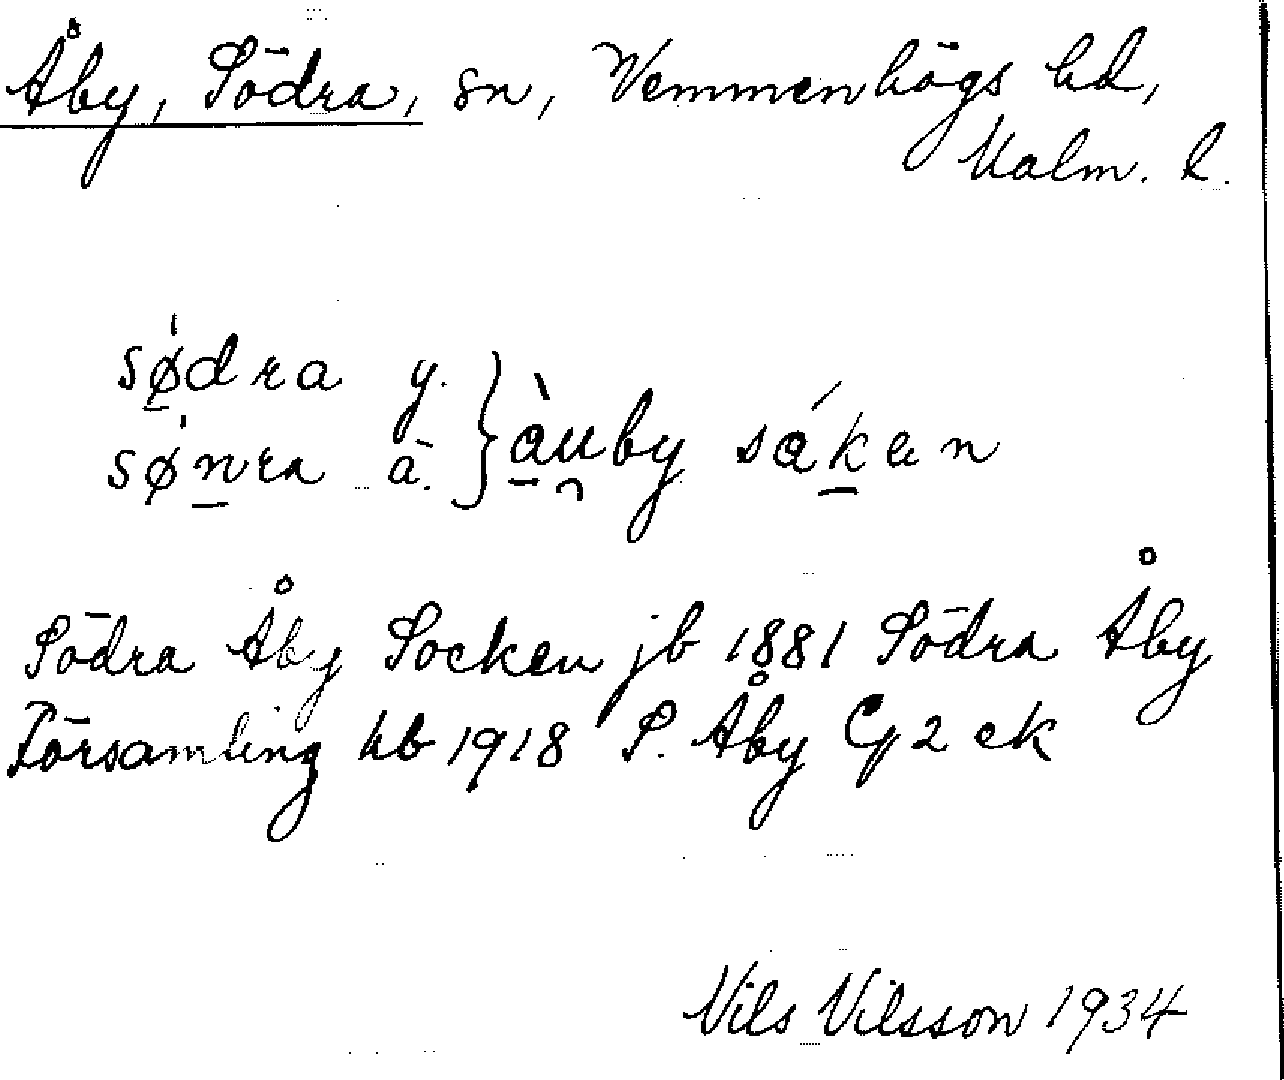 Åby, Södra, sn, Vemmenhögs hd,
Malm. l.
sø̀dra y.
sø̀nra ä.
} àuby såkan
Södra Åby Socken jb 1881 Södra Åby
Församling hb 1918 S. Åby G 2 ek
Nils Nilsson 1934